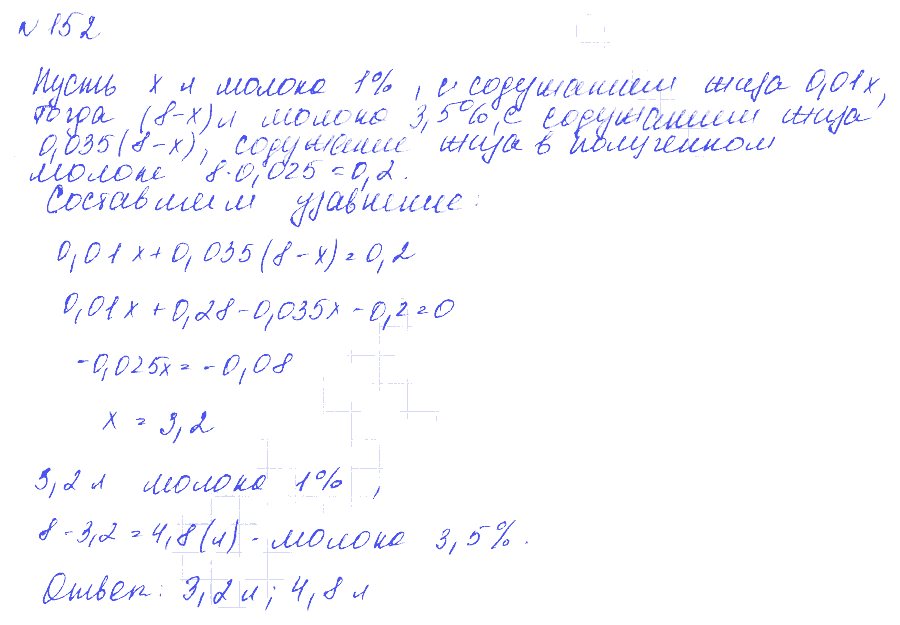 № 152
Пусть х л молока 1%, с содержанием жира 0,01х,
тогда (8-х) л молока 3,5%, с содержанием жира
0,035(8-х), содержание жира в полученном
молоке 8·0,025=0,2.
Составляем уравнение:
0,01х+0,035(8-х)=0,2
0,01х+0,28-0,035х-0,2=0
-0,025х=-0,08
х = 3,2
3,2 л молока 1%,
8-3,2=4,8(л) - молока 3,5%.
Ответ: 3,2 л; 4,8 л